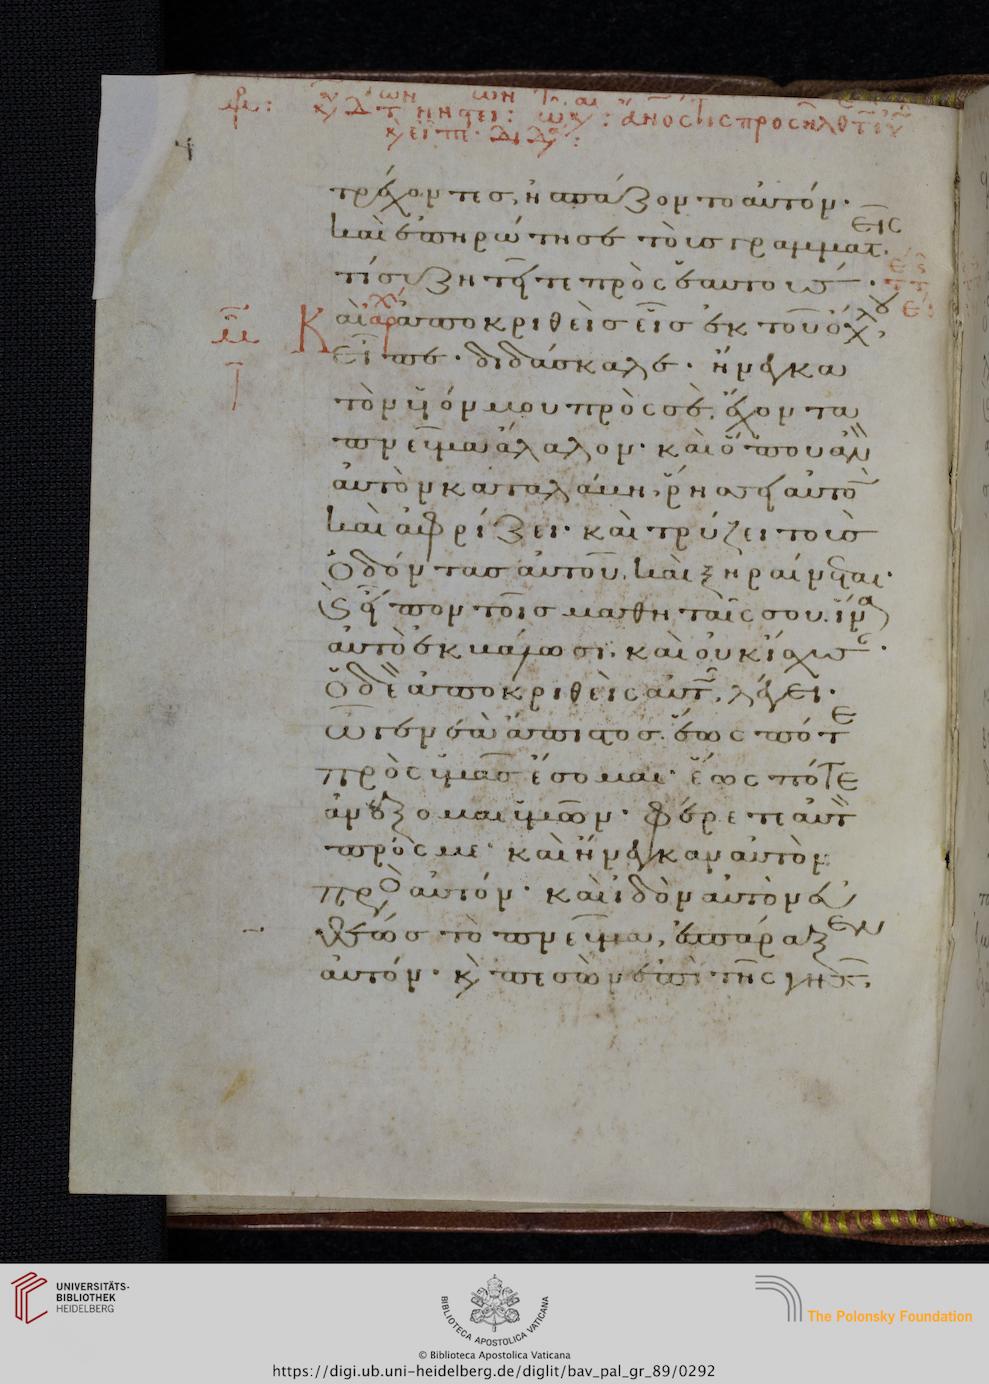 τρέχοντες, ἠσπάζοντο αὐτόν·
Καὶ ἐπηρώτησε τοὺς γραμματεῖς·
τί συζητεῖτε πρὸς ἑαυτούς·
Καὶ ἀποκριθεὶς εἷς ἐκ τοῦ ὄχλου,
εἶπε· διδάσκαλε· ἤνεγκα
τὸν υἱόν μου πρὸς σέ, ἔχοντα
πνεῦμα ἄλαλον· καὶ ὅπου ἂν
αὐτὸν καταλάβῃ, ῥήσσει αὐτόν
καὶ ἀφρίζει· καὶ τρύζει τοὺς
ὀδόντας αὐτοῦ, καὶ ξηραίνεται·
καὶ εἶπον τοῖς μαθηταῖς σου, ἵνα
αὐτὸ ἐκβάλωσι, καὶ οὐκ ἴσχυσαν·
Ὁ δὲ ἀποκριθεὶς αὐτῷ, λέγει·
ὦ γενεὰ ἄπιστος, ἕως πότε
πρὸς ὑμᾶς ἔσομαι· ἕως πότε
ἀνέξομαι ὑμῶν· φέρετε αὐτὸν
πρός με· καὶ ἤνεγκαν αὐτὸν
πρὸς αὐτόν· καὶ ἰδὸν αὐτὸν
εὐθέως τὸ πνεῦμα, ἐσπάραξεν
αὐτόν· κὲ πεσὼν ἐπὶ τῆς γῆς,
UNIVERSITÄTS-
BIBLIOTHEK
HEIDELBERG
BIBLIOTECA APOSTOLICA VATICANA
The Polonsky Foundation
© Biblioteca Apostolica Vaticana
https://digi.ub.uni-heidelberg.de/diglit/bav_pal_gr_89/0292